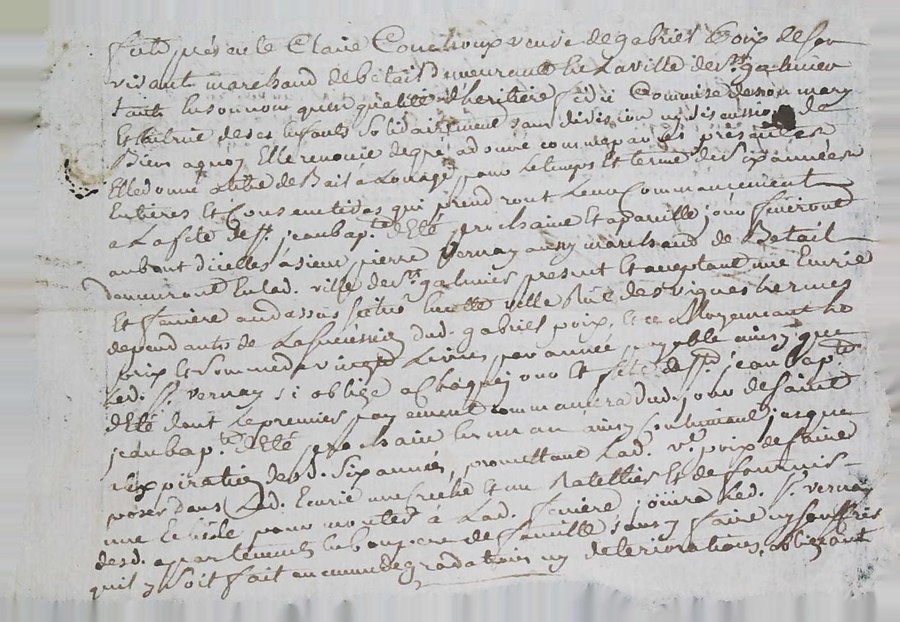 fut présente Claire Couchoux veuve de gabriel poix de son
vivant marchand de betail demeurante En La ville de st galmier
tant En son nom qu'en qualité d'heritiere fidei Commise de son mary
Et tutrice de ses Enfants Solidairement sans division ny discussion de
Biens a quoy Elle renonce de gré a donné comme par Les presentes
Elle donne a titre de Bail a Louage pour Le temps Et terme de Six années
Entieres Et Consecutives qui prendront Leur Commancement
a La fete de st. jean bapte. d'Eté prochaine Et a pareille jour finiront
au bout d'icelles a sieur pierre Vernay aussy marchand de Betail
demeurant En lad. ville de st. galmier present Et acceptant une Eurie
Et feniere au dessus scitué En cette ville Rüe des vignes
dependants de La dud. gabriel poix, Et ce Moyennant Le
prix Et Somme de vingt Livres par année payable ainsy que
Led. sr. vernay s'i oblige a Chaque jour Et fete de st. jean bapte
d'Eté dont Le premier payement commancera dud. jour de saint
jean bapte. d'Eté prochaine En un an ainsy Continuant jusque
a L'Expiration desd. Six années, promettant Lad. ve. poix de faire
poser dans Lad. Eurie une Creche Et un Ratellier Et de fournir
une Echele pour monter a Lad. feniere, joüira Led. sr. vernay
desd. apartements En bon pere de famille sans y faire ny souffrir
quil y soit fait aucunne degradations ny deteriorations, obligeant